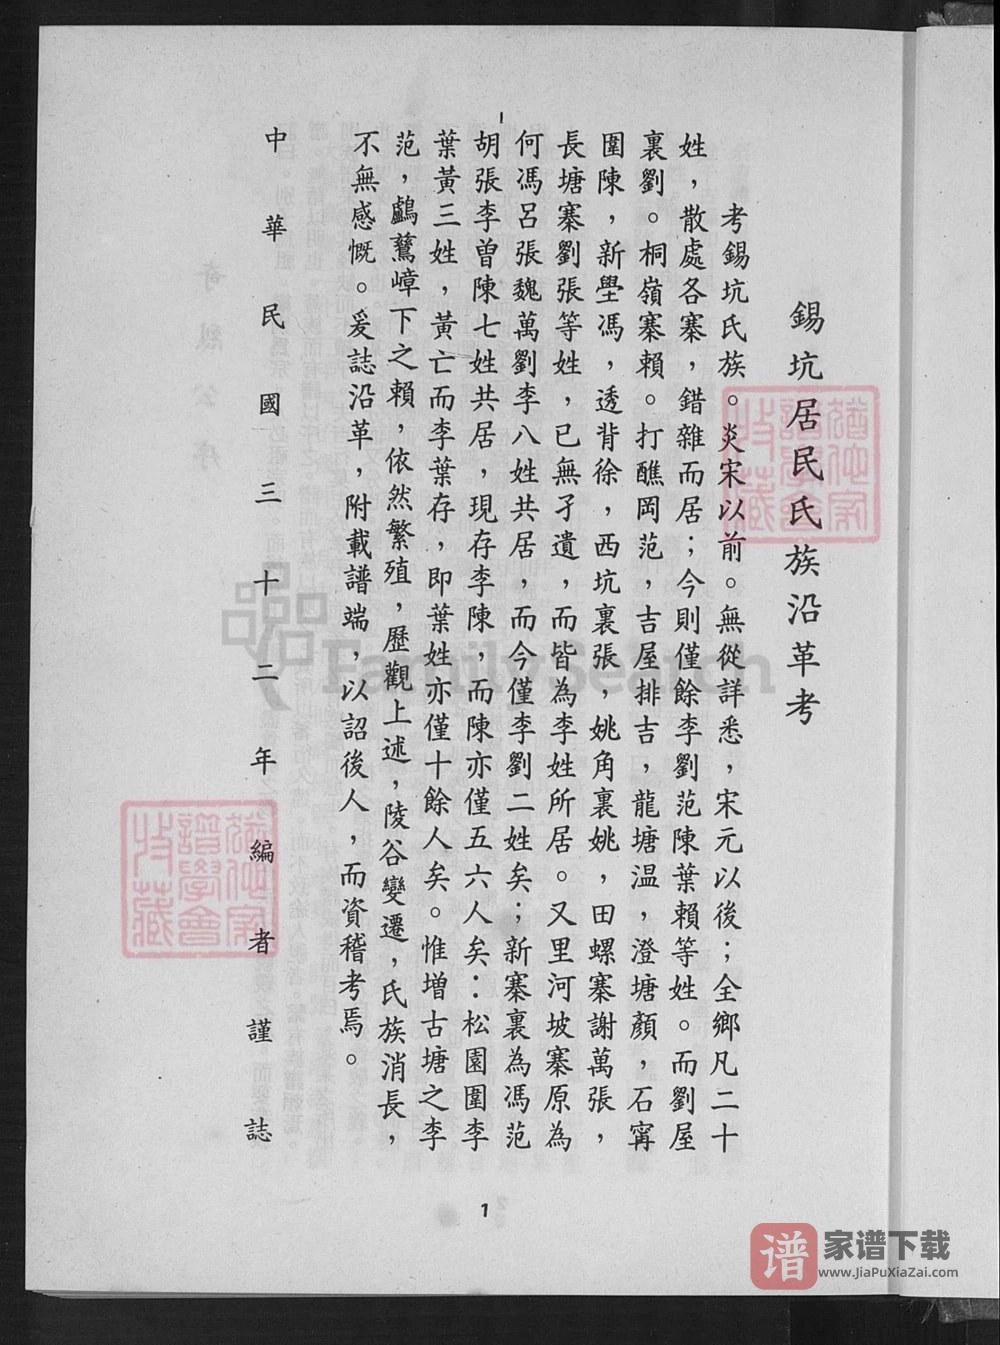 錫坑居民氏族沿革考
考錫坑氏族。炎宋以前。無從詳悉，宋元以後；全鄉凡二十
姓，散處各寨，錯雜而居；今則僅餘李劉范陳葉賴等姓。而劉屋
裏劉。桐嶺寨賴。打醮岡范，吉屋排吉，龍塘温，澄塘顏，石寗
圍陳，新壆馮，透背徐，西坑裏張，姚角裏姚，田螺寨謝萬張，
長塘寨劉張等姓，已無孑遺，而皆為李姓所居。又里河坡寨原為
何馮呂張魏萬劉李八姓共居，而今僅李劉二姓矣；新寨裏為馮范
胡張李曾陳七姓共居，現存李陳，而陳亦僅五六人矣：松園圍李
葉黃三姓，黃亡而李葉存，即葉姓亦僅十餘人矣。惟增古塘之李
范，鸕鶿嶂下之賴，依然繁殖，歷觀上述，陵谷變遷，氏族消長，
不無感慨。爰誌沿革，附載譜端，以詔後人，而資稽考焉。
中華民國三十二年編者謹誌
1
FamilySearch
譜學會
特藏
譜學會
特藏
谱
家谱下载
www.JiaPuXiaZai.com